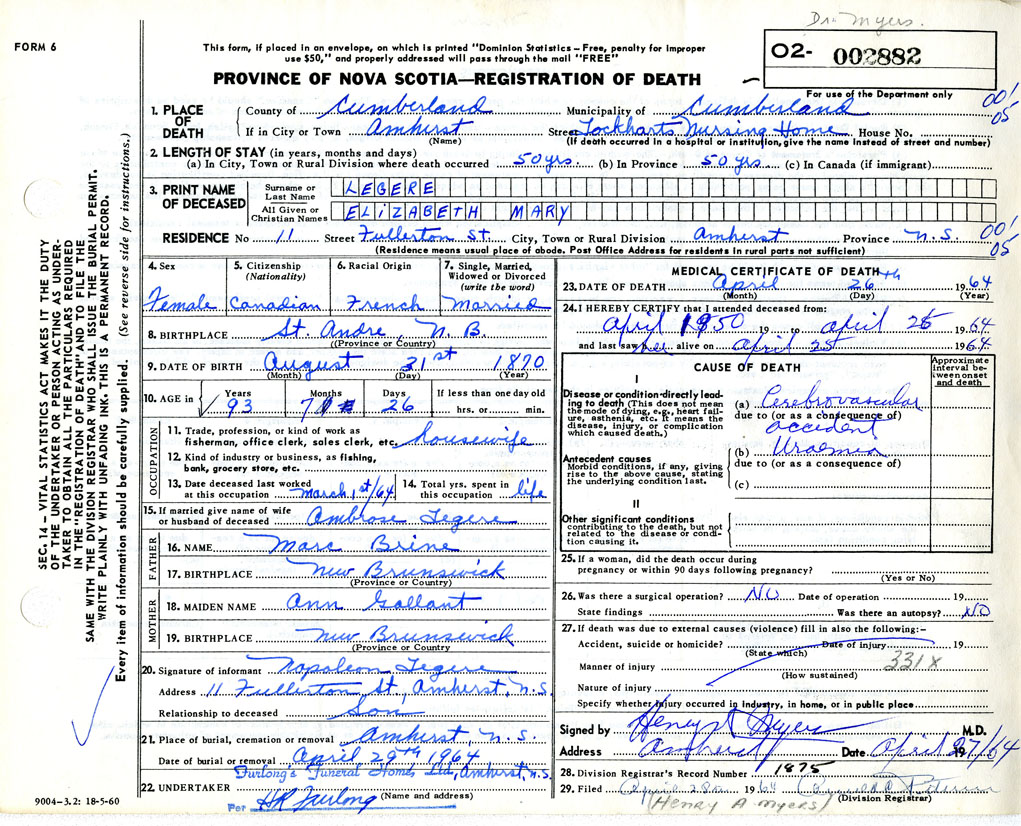 Dr. Myers.
FORM 6
This form, if placed in an envelope, on which is printed "Dominion Statistics – Free, penalty for improper
use $50," and properly addressed will pass through the mail "FREE"
02- 002882
For use of the Department only
PROVINCE OF NOVA SCOTIA—REGISTRATION OF DEATH
1. PLACE OF DEATH County of Cumberland Municipality of Cumberland 00'
If in City or Town Amherst Street Lockharts Nursing Home House No. 05
(Name) (If death occurred in a hospital or institution, give the name instead of street and number)
2. LENGTH OF STAY (in years, months and days)
(a) In City, Town or Rural Division where death occurred 50 yrs. (b) In Province 50 yrs. (c) In Canada (if immigrant)
3. PRINT NAME OF DECEASED Surname or Last Name LEGERE
All Given or Christian Names ELIZABETH MARY
RESIDENCE No 11 Street Fullerton St. City, Town or Rural Division Amherst Province N.S. 00' 05
(Residence means usual place of abode. Post Office Address for residents in rural parts not sufficient)
4. Sex
Female
5. Citizenship
(Nationality)
Canadian
6. Racial Origin
French
7. Single, Married,
Widowed or Divorced
(write the word)
Married
8. BIRTHPLACE St. Andre N.B.
(Province or Country)
9. DATE OF BIRTH August 31st 1870
(Month) (Day) (Year)
10. AGE in Years Months Days If less than one day old
93 7 26 hrs. or min.
OCCUPATION
11. Trade, profession, or kind of work as
fisherman, office clerk, sales clerk, etc. housewife
12. Kind of industry or business, as fishing,
bank, grocery store, etc.
13. Date deceased last worked
at this occupation March 1st/64
14. Total yrs. spent in
this occupation life
15. If married give name of wife
or husband of deceased Ambrose Legere
FATHER
16. NAME Marc Brine
17. BIRTHPLACE New Brunswick
(Province or Country)
MOTHER
18. MAIDEN NAME Ann Gallant
19. BIRTHPLACE New Brunswick
(Province or Country)
20. Signature of informant Napoleon Legere
Address 11 Fullerton St., Amherst, N.S.
Relationship to deceased Son
21. Place of burial, cremation or removal Amherst N.S.
Date of burial or removal April 29th 1964
Furlong's Funeral Home Ltd, Amherst, N.S.
22. UNDERTAKER (Name and address)
Per H R Furlong
MEDICAL CERTIFICATE OF DEATH
23. DATE OF DEATH April 26th 1964
(Month) (Day) (Year)
24. I HEREBY CERTIFY that I attended deceased from:
April 1950 19 to April 26 1964
and last saw her alive on April 25 1964
CAUSE OF DEATH
Approximate
interval between onset
and death
I
Disease or condition directly leading to death (This does not mean
the mode of dying, e.g., heart failure, asthenia, etc. It means the
disease, injury, or complication
which caused death.)
(a) Cerebrovascular
due to (or as a consequence of)
accident
Antecedent causes
Morbid conditions, if any, giving
rise to the above cause, stating
the underlying condition last.
(b) Uraemia
due to (or as a consequence of)
(c)
II
Other significant conditions
contributing to the death, but not
related to the disease or condition causing it.
25. If a woman, did the death occur during
pregnancy or within 90 days following pregnancy?
(Yes or No)
26. Was there a surgical operation? NO Date of operation 19
State findings Was there an autopsy? NO
27. If death was due to external causes (violence) fill in also the following:–
Accident, suicide or homicide? Date of injury 19
(State which) 331X
Manner of injury
(How sustained)
Nature of injury
Specify whether injury occurred in industry, in home, or in public place
Signed by Henry A Myers M.D.
Address Amherst Date April 27/64
28. Division Registrar's Record Number 1875
29. Filed April 28th 1964
(Division Registrar)
(Henry A Myers)
SEC. 14 – VITAL STATISTICS ACT MAKES IT THE DUTY
OF THE UNDERTAKER OR PERSON ACTING AS UNDERTAKER TO OBTAIN ALL THE PARTICULARS REQUIRED
IN THE "REGISTRATION OF DEATH" AND TO FILE THE
SAME WITH THE DIVISION REGISTRAR WHO SHALL ISSUE THE BURIAL PERMIT.
WRITE PLAINLY WITH UNFADING INK. THIS IS A PERMANENT RECORD.
Every item of information should be carefully supplied. (See reverse side for instructions.)
9004–3.2: 18-5-60